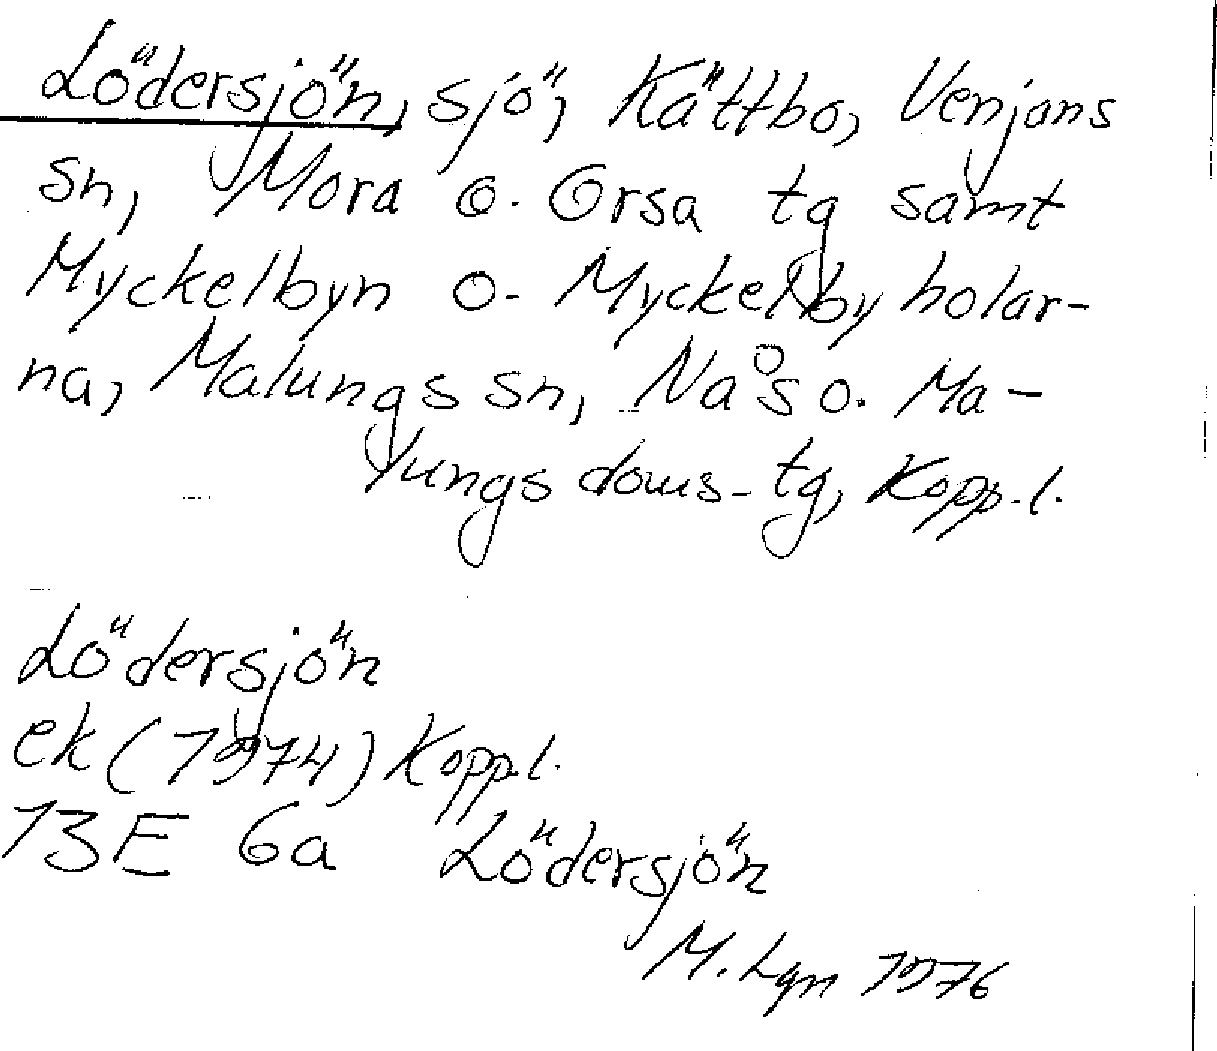 Lödersjön, sjö, Kättbo, Venjans
sn, Mora o. Orsa tg samt
Myckelbyn o. Myckelbyholar-
na, Malungs sn, Nås o. Ma-
lungs doms-tg, Kopp.l.
Lödersjön
ek (1974) Kopp.l.
13E 6a Lödersjön
M. Lgn 1976